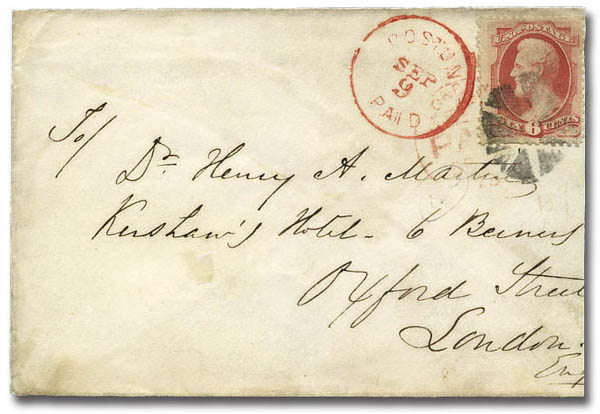 U.S. POSTAGE
SIX 6 CENTS
BOSTON
SEP
9
PAID
To/
Dr. Henry A. Martin
Kershaw's Hotel - 6 Berners
Oxford Stree
London.
Eng